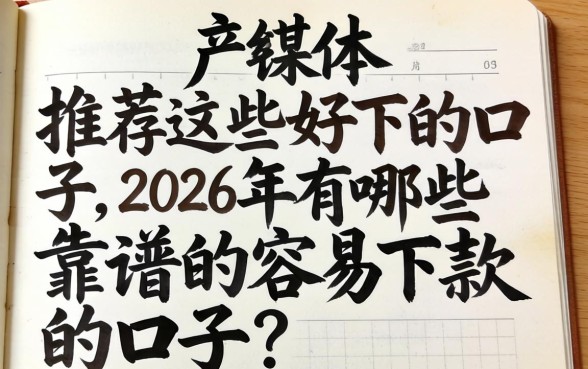 产鎂体
05
推荐这些好下的口
子,2026年有哪些
靠谱的容易下款
的口子?